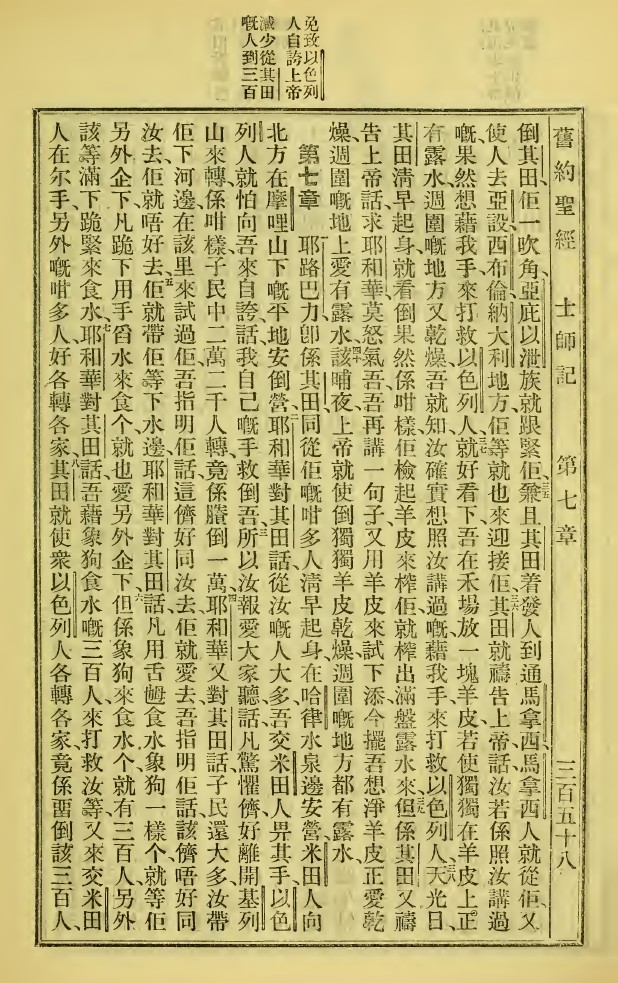 免致以色列
人自誇上帝
滅少從其田
嘅人到三百
舊約聖經　士師記　第七章　三百五十八
倒其田、佢一吹角、亞庇以泄族就跟緊佢、三五兼且其田着發人到通馬拿西、馬拿西人就從佢、又
使人去亞設西布倫納大利地方、佢等就也來迎接佢、三六其田就禱告上帝話、汝若係照汝講過
嘅、果然想藉我手來打救以色列人、三七就好看下、吾在禾場放一塊羊皮、若使獨獨在羊皮上正
有露水、週圍嘅地方又乾燥、吾就知汝確實想照汝講過嘅、藉我手來打救以色列人、三八天光日、
其田清早起身、就看倒果然係咁樣、佢檢起羊皮來榨、佢就榨出滿盤露水來、三九但係其田又禱
告上帝話、求耶和華莫怒氣吾、吾再講一句子、又用羊皮來試下添、今擺吾想淨羊皮正愛乾
燥、週圍嘅地上愛有露水、四十該晡夜上帝就使倒獨獨羊皮乾燥、週圍嘅地方都有露水、
第七章　耶路巴力、卽係其田、同從佢嘅咁多人、清早起身、在哈律水泉邊安營、米田人向
北方在摩哩山下嘅平地安倒營、二耶和華對其田話、從汝嘅人大多、吾交米田人畀其手、以色
列人就怕向吾來自誇話、我自己嘅手救倒吾、三所以汝報愛大家聽話、凡驚懼儕好離開基列
山來轉、係咁樣子民中二萬二千人轉、竟係賸倒一萬、四耶和華又對其田話、子民還大多、汝帶
佢下河邊、在該里來試過佢、吾指明佢話、這儕好同汝去、佢就愛去、吾指明佢話、該儕唔好同
汝去、佢就唔好去、五佢就帶佢等下水邊、耶和華對其田話、凡用舌𦧧食水、象狗一樣个、就等佢
另外企下、凡跪下用手舀水來食个、就也愛另外企下、六但係象狗來食水个、就有三百人、另外
該等滿下跪緊來食水、七耶和華對其田話、吾藉象狗食水嘅三百人、來打救汝等、又來交米田
人在尔手、另外嘅咁多人好各轉各家、八其田就使衆以色列人各轉各家、竟係畱倒該三百人、